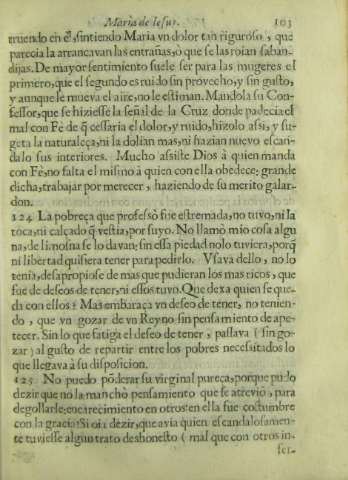 Maria de Iesus. 103
truendo en el, sintiendo Maria vn dolor tan riguroso, que
parecia la arrancavan las entrañas, ò que se las roìan saban-
dijas. De mayor sentimiento suele ser para las mugeres el
primero, que el segundo es ruido sin provecho, y sin gusto,
y aunque le mueva el aire, no le estiman. Mandola su Con-
fessor, que se hiziesse la señal de la Cruz donde padecia el
mal con Fè de q̃ cessaria el dolor, y ruido, hizolo assi, y su-
geta la naturaleça, ni la dolian mas, ni hazian nuevo escan-
dalo sus interiores. Mucho assiste Dios à quien manda
con Fè, no falta el mismo à quien con ella obedece: grande
dicha, trabajar por merecer, haziendo de su merito galar-
don.
124 La pobreça que professò fue estremada, no tuvo, ni la
toca, ni calçado q̃ vestia, por suyo. No llamò mio cosa algu
na, de limosna se lo davan: sin essa piedad nolo tuviera, porq̃
ni libertad quisiera tener para pedirlo. Vsava dello, no lo
tenia, desapropiose de mas que pudieran los mas ricos, que
fue de deseos de tener, ni essos tuvo. Que dexa quien se que-
da con ellos? Mas embaraça vn deseo de tener, no tenien-
do, que vn gozar de vn Reyno sin pensamiento de ape-
tecer. Sin lo que fatiga el deseo de tener, passava (sin go-
zar) al gusto de repartir entre los pobres necessitados lo
que llegava à su disposicion.
125 No puedo põderar su virginal pureça, porque puedo
dezir que no la manchò pensamiento que se atreviò, para
degollarle: encarecimiento en otros en ella fue costumbre
con la gracia: Si oìa dezir, que avia quien escandalosamen-
te tuviesse algun trato deshonesto (mal que con otros in-
fer-